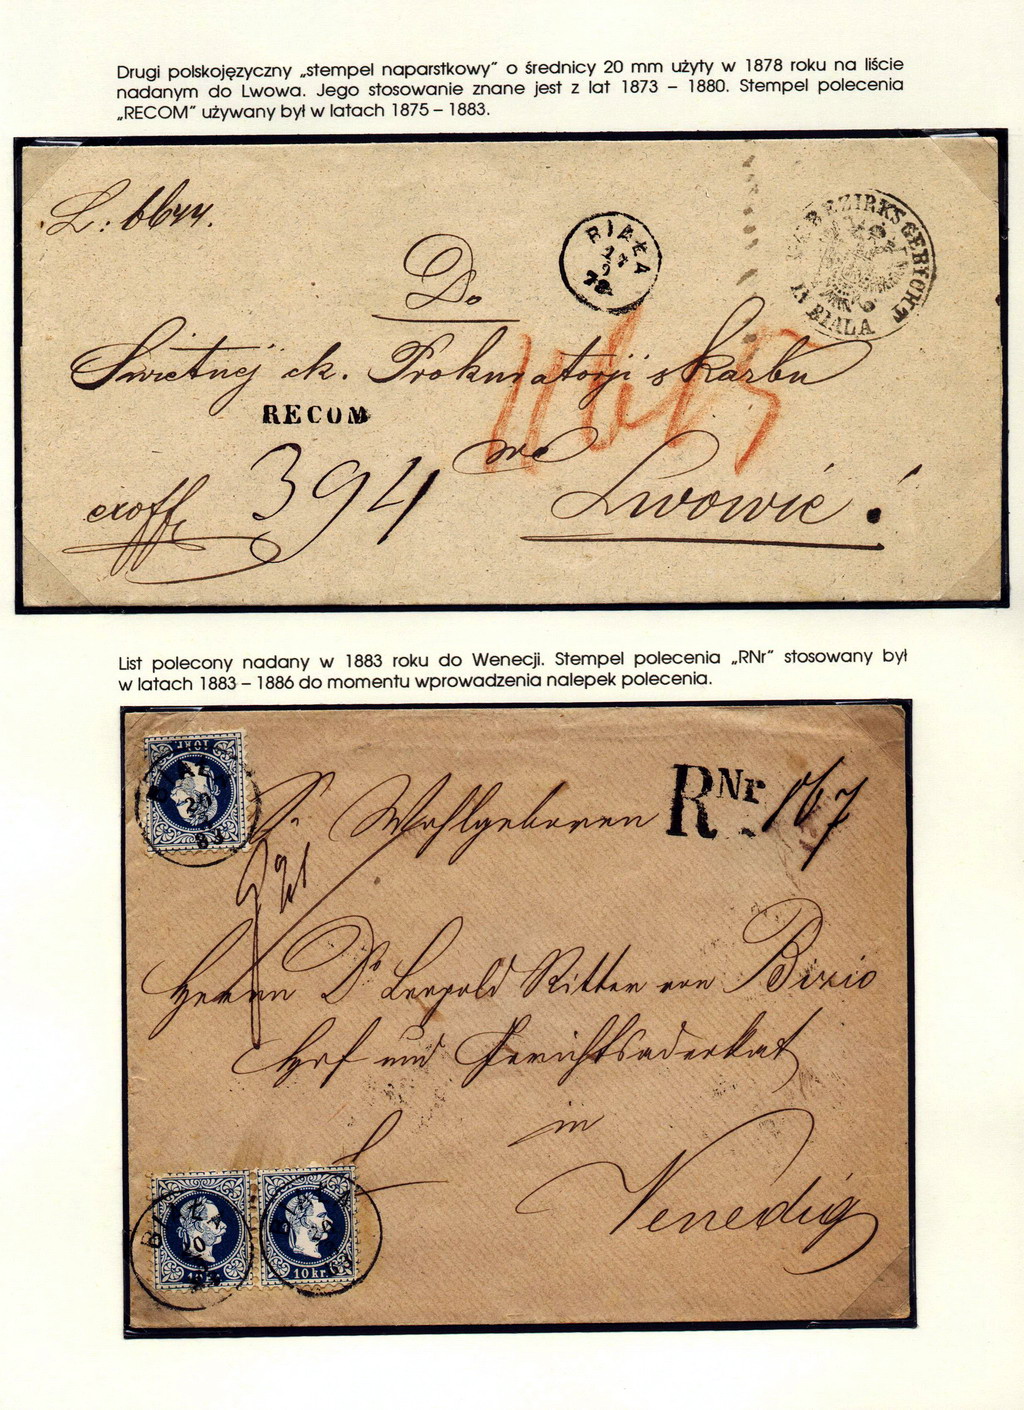 Drugi polskojęzyczny „stempel naparstkowy” o średnicy 20 mm użyty w 1878 roku na liście
nadanym do Lwowa. Jego stosowanie znane jest z lat 1873 – 1880. Stempel polecenia
„RECOM” używany był w latach 1875 – 1883.
L: 6644.
BIAŁA
78
K.K. BEZIRKSGERICHT
IN BIALA
Do
Swietnej ck. Prokuratorji skarbu
RECOM
we
394
exoffo
Lwowie!
List polecony nadany w 1883 roku do Wenecji. Stempel polecenia „RNr” stosowany był
w latach 1883 – 1886 do momentu wprowadzenia nalepek polecenia.
10 kr.
BIAŁA
20
83
Sr. Wohlgeboren
RNr 167
Herrn Dr Leopold Ritter von Bizio
Hof und Gerichtsadvokat
in
Venedig
BIAŁA
20
10 kr.
BIAŁA
20
83
10 kr.